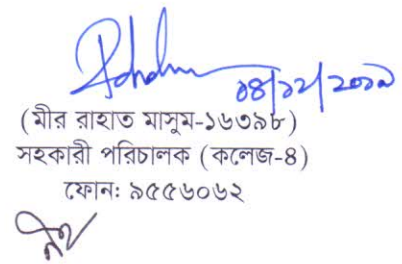 ০৪/১২/২০১৯
(মীর রাহাত মাসুম-১৬৩৯৮)
সহকারী পরিচালক (কলেজ-৪)
ফোনঃ ৯৫৫৬০৬২